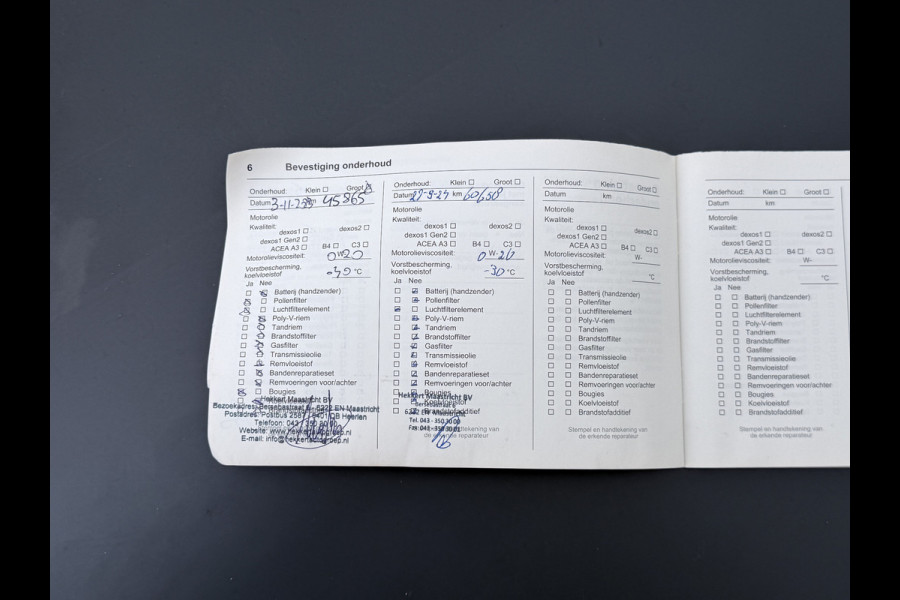 6 Bevestiging onderhoud
Onderhoud: Klein ☐ Groot ☒
Datum 3-11-2 km 45865
Motorolie
Kwaliteit:
dexos1 ☐ dexos2 ☐
dexos1 Gen2 ☐
ACEA A3 ☐ B4 ☐ C3 ☐
Motorolieviscositeit: 0 W-20
Vorstbescherming,
koelvloeistof °C
Ja Nee
Batterij (handzender)
Pollenfilter
Luchtfilterelement
Poly-V-riem
Tandriem
Brandstoffilter
Gasfilter
Transmissieolie
Remvloeistof
Bandenreparatieset
Remvoeringen voor/achter
Bougies
Hekkert Maastricht BV
Bezoekadres: 6222 EN Maastricht
Postadres: Postbus 2587 - 6401 DB Heerlen
Telefoon: 043
Website: www.hekkertautogroep.nl
E-mail: info@hekkertautogroep.nl
Onderhoud: Klein ☐ Groot ☐
Datum 27-9-24 km 60650
Motorolie
Kwaliteit:
dexos1 ☐ dexos2 ☐
dexos1 Gen2 ☐
ACEA A3 ☐ B4 ☐ C3 ☐
Motorolieviscositeit: 0 W-20
Vorstbescherming,
koelvloeistof -30 °C
Ja Nee
Batterij (handzender)
Pollenfilter
Luchtfilterelement
Poly-V-riem
Tandriem
Brandstoffilter
Gasfilter
Transmissieolie
Remvloeistof
Bandenreparatieset
Remvoeringen voor/achter
Bougies
Hekkert Maastricht BV
Koelvloeistof
Brandstofadditief
Tel. 043 - 350 30 00
de erkende reparateur
Onderhoud: Klein ☐ Groot ☐
Datum km
Motorolie
Kwaliteit:
dexos1 ☐ dexos2 ☐
dexos1 Gen2 ☐
ACEA A3 ☐ B4 ☐ C3 ☐
Motorolieviscositeit: W-
Vorstbescherming,
koelvloeistof °C
Ja Nee
Batterij (handzender)
Pollenfilter
Luchtfilterelement
Poly-V-riem
Tandriem
Brandstoffilter
Gasfilter
Transmissieolie
Remvloeistof
Bandenreparatieset
Remvoeringen voor/achter
Bougies
Koelvloeistof
Brandstofadditief
Stempel en handtekening van
de erkende reparateur
Onderhoud: Klein ☐ Groot ☐
Datum km
Motorolie
Kwaliteit:
dexos1 ☐ dexos2 ☐
dexos1 Gen2 ☐
ACEA A3 ☐ B4 ☐ C3 ☐
Motorolieviscositeit: W-
Vorstbescherming,
koelvloeistof °C
Ja Nee
Batterij (handzender)
Pollenfilter
Luchtfilterelement
Poly-V-riem
Tandriem
Brandstoffilter
Gasfilter
Transmissieolie
Remvloeistof
Bandenreparatieset
Remvoeringen voor/achter
Bougies
Koelvloeistof
Brandstofadditief
Stempel en handtekening van
de erkende reparateur